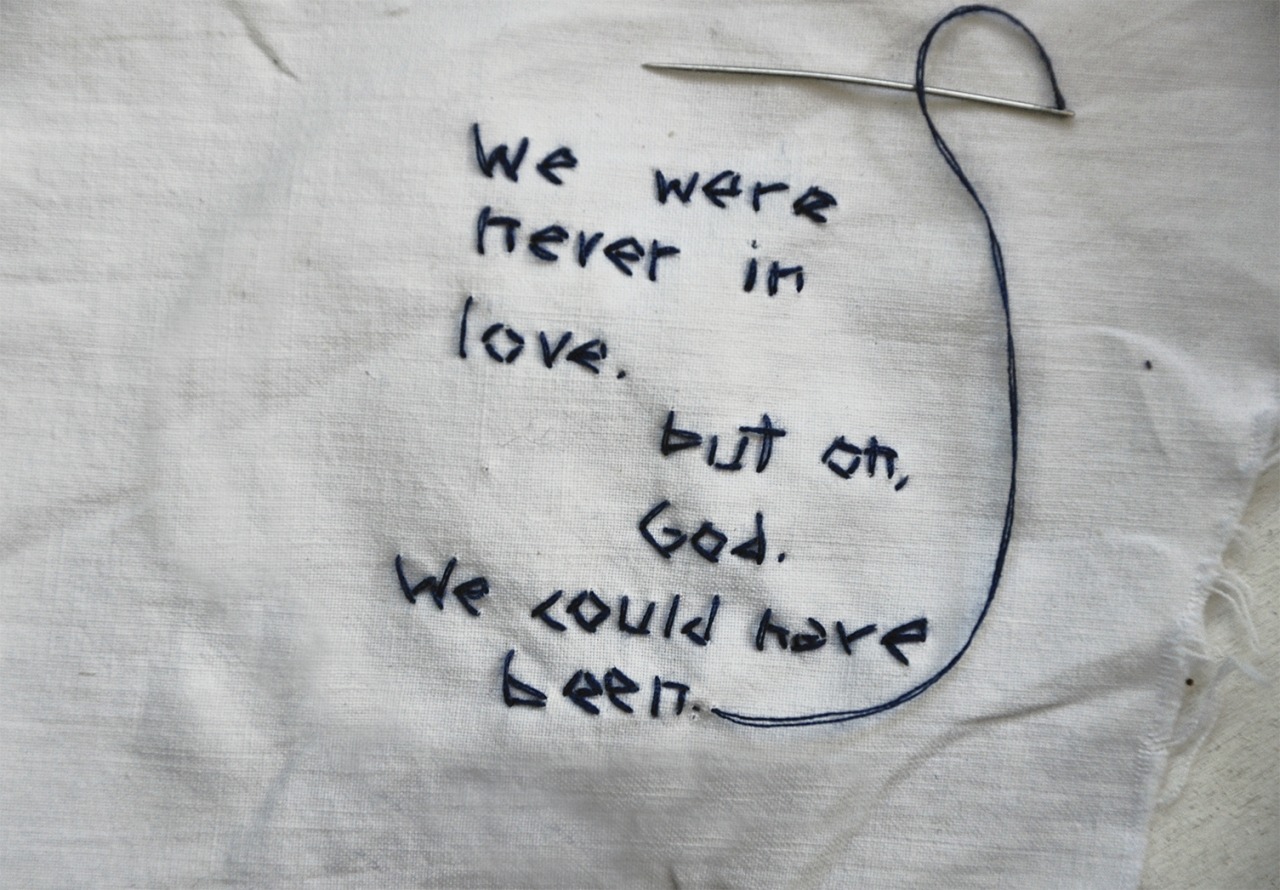 We were
never in
love.
but oh,
God.
We could have
been.